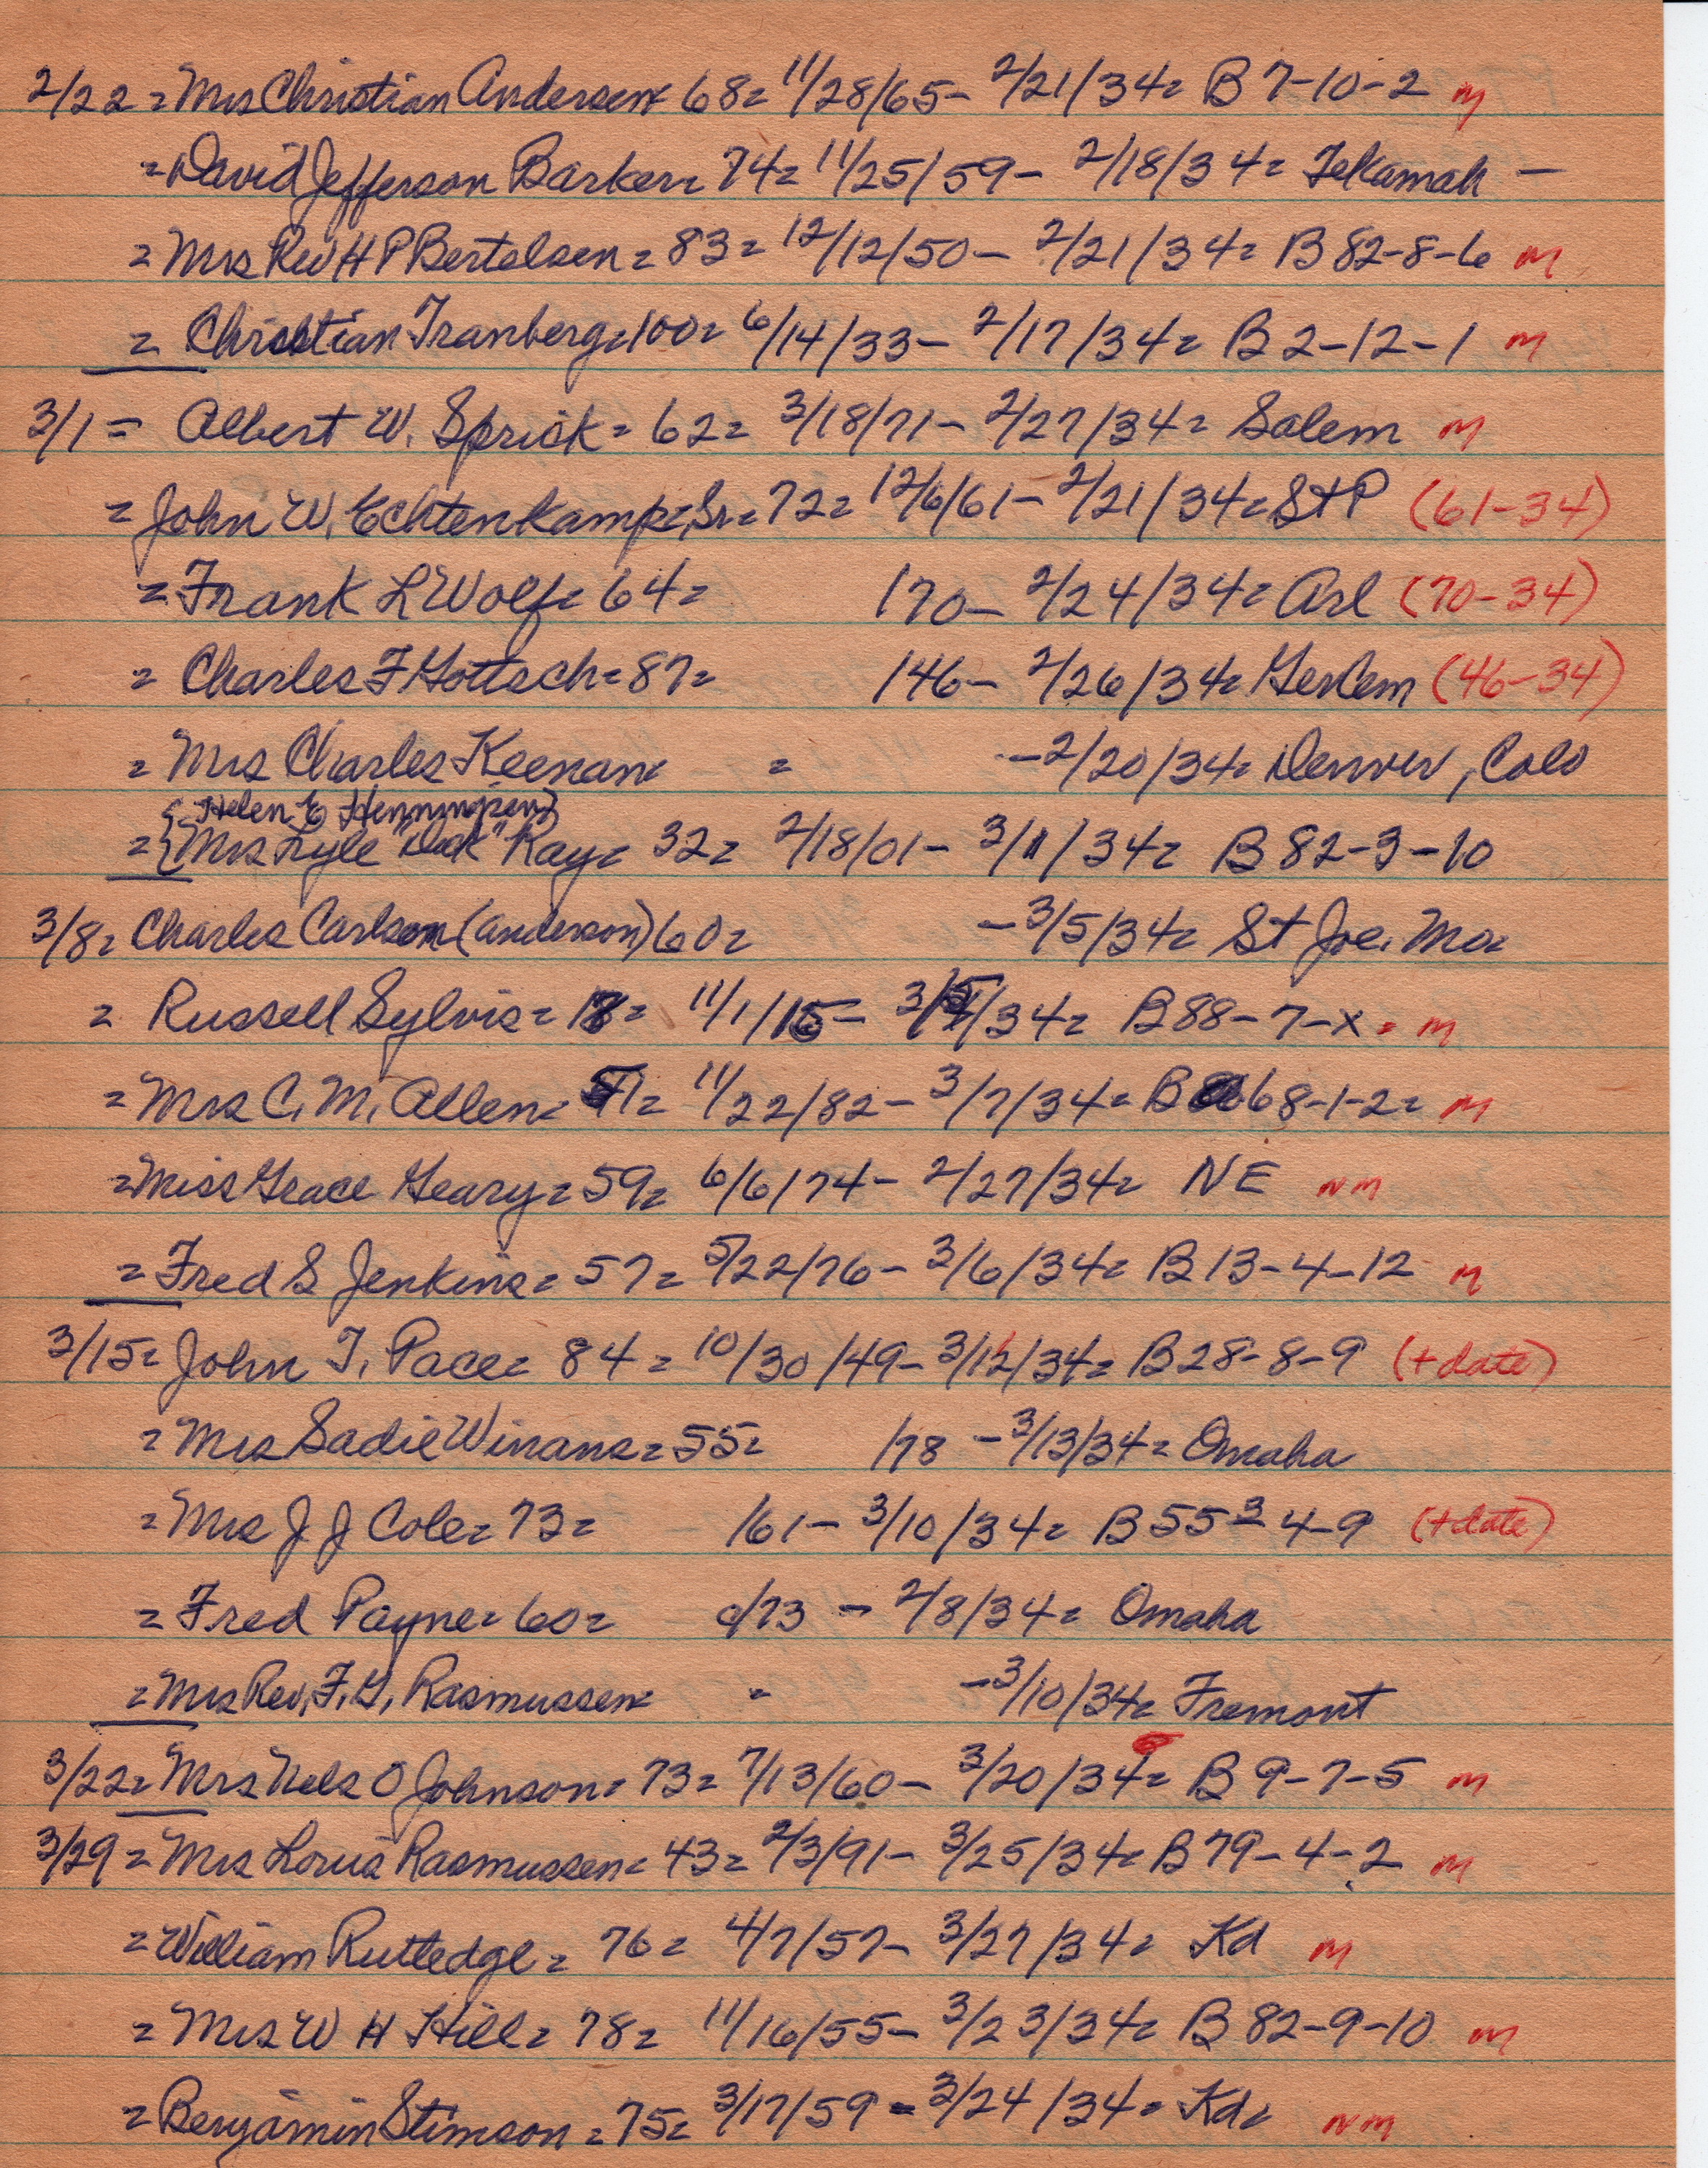 2/22 = Mrs Christian Andersen = 68 = 11/28/65 - 2/21/34 = B 7-10-2 m
= David Jefferson Barker = 74 = 11/25/59 - 2/18/34 = Tekamah —
= Mrs Rev H P Bertelsen = 83 = 12/12/50 - 2/21/34 = B 82-8-6 m
= Christian Tranberg = 100 = 6/14/33 - 2/17/34 = B 2-12-1 m
3/1 = Albert W. Sprick = 62 = 3/18/71 - 2/27/34 = Salem m
= John W. Echtenkamp, Sr = 72 = 12/6/61 - 2/21/34 = St P (61-34)
= Frank L Wolf = 64 = /70 - 2/24/34 = Arl (70-34)
= Charles F Gottsch = 87 = /46 - 2/26/34 = GerCem (46-34)
= Mrs Charles Keenan = = - 2/20/34 = Denver, Colo
{Helen E Henningsen}
= {Mrs Lyle "Dick" Ray = 32 = 2/18/01 - 3/1/34 = B 82-3-10
3/8 = Charles Carlson (Anderson) 60 = - 3/5/34 = St Joe. Mo =
= Russell Sylvis = 18 = 11/1/15 - 3/5/34 = B 88-7-x = m
= Mrs C. M. Allen = 51 = 11/22/82 - 3/7/34 = B 68-1-2 = m
= Miss Grace Geary = 59 = 6/6/74 - 2/27/34 = NE nm
= Fred S Jenkins = 57 = 5/22/76 - 3/6/34 = B 13-4-12 m
3/15 = John T. Pace = 84 = 10/30/49 - 3/12/34 = B 28-8-9 (+date)
= Mrs Sadie Winans = 55 = /78 - 3/13/34 = Omaha
= Mrs J J Cole = 73 = /61 - 3/10/34 = B 55-4-9 (+date)
= Fred Payne = 60 = c/73 - 2/8/34 = Omaha
= Mrs Rev. F. G. Rasmussen = = - 3/10/34 = Fremont
3/22 = Mrs Nels O Johnson = 73 = 7/13/60 - 3/20/34 = B 9-7-5 m
3/29 = Mrs Louis Rasmussen = 43 = 2/3/91 - 3/25/34 = B 79-4-2 m
= William Rutledge = 76 = 4/7/57 - 3/27/34 = Kd m
= Mrs W H Hill = 78 = 11/16/55 - 3/23/34 = B 82-9-10 m
= Benjamin Stimson = 75 = 3/17/59 - 3/24/34 = Kd = nm